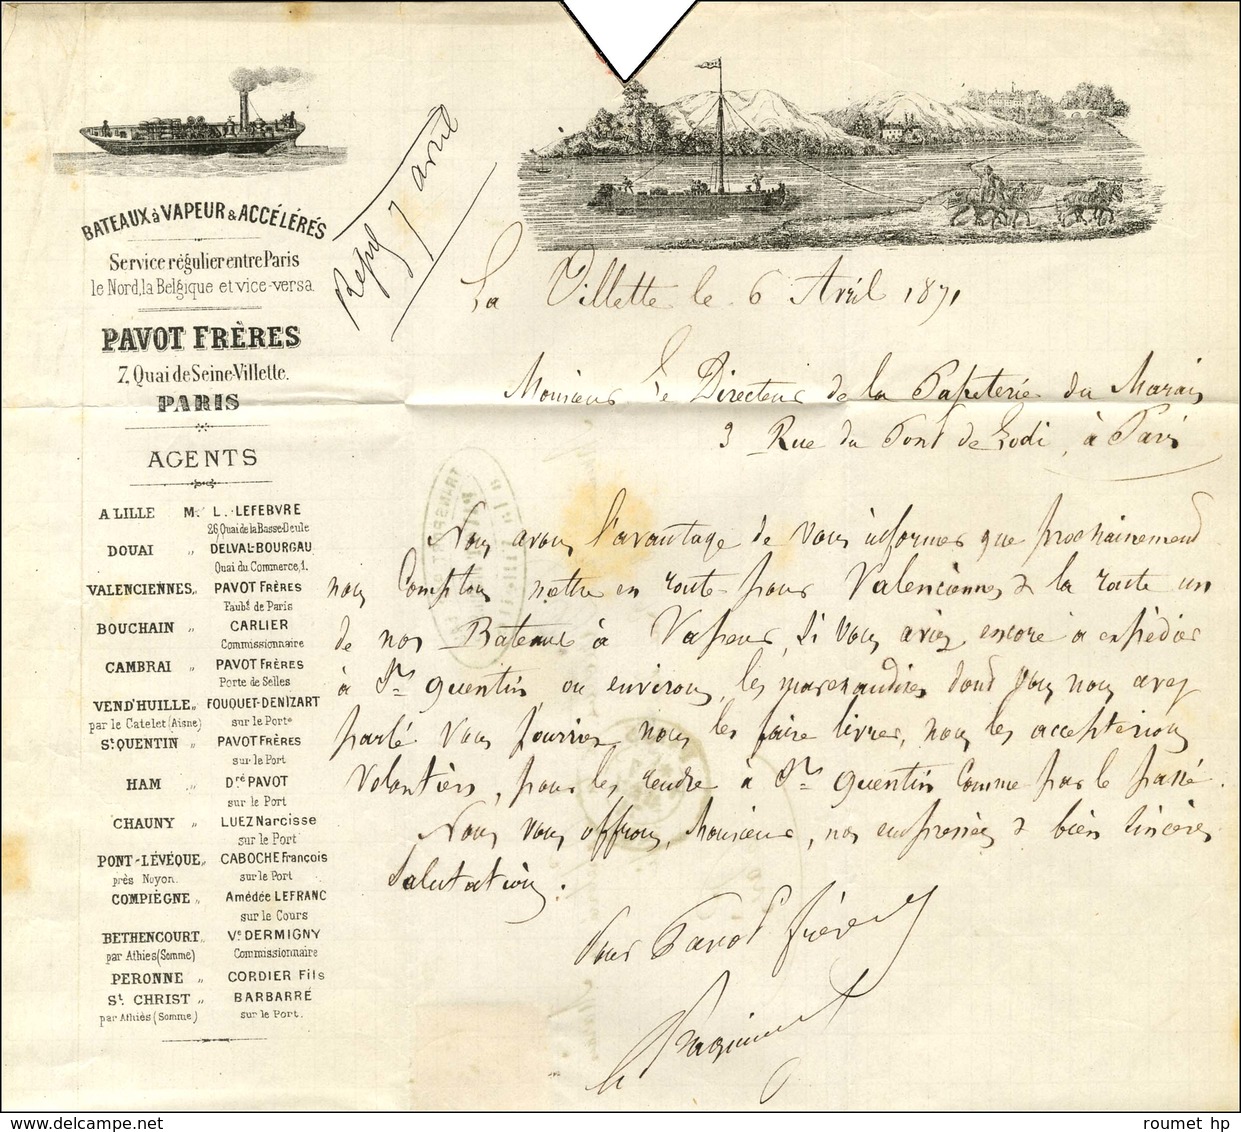 BATEAUX à VAPEUR & ACCÉLÉRÉS
Service régulier entre Paris
le Nord, la Belgique et vice-versa.
PAVOT FRÈRES
7, Quai de Seine-Villette.
PARIS
AGENTS
A LILLE M. L. LEFEBVRE
26, Quai de la Basse-Deule
DOUAI „ DELVAL-BOURGAU
Quai du Commerce, 1.
VALENCIENNES „ PAVOT FRÈRES
Faubg. de Paris
BOUCHAIN „ CARLIER
Commissionnaire
CAMBRAI „ PAVOT FRÈRES
Porte de Selles
VEND'HUILLE „ FOUQUET-DENIZART
par le Catelet (Aisne) sur le Port
St QUENTIN „ PAVOT FRÈRES
sur le Port
HAM „ Dré PAVOT
sur le Port
CHAUNY „ LUEZ Narcisse
sur le Port
PONT-LÉVÊQUE „ CABOCHE François
près Noyon. sur le Port
COMPIÈGNE „ Amédée LEFRANC
sur le Cours
BETHENCOURT „ Ve DERMIGNY
par Athies (Somme) Commissionnaire
PERONNE „ CORDIER Fils
St CHRIST „ BARBARRÉ
par Athiès (Somme) sur le Port.
7 avril
La Villette le 6 Avril 1871
Monsieur le Directeur de la Papeterie du Marais
3 Rue du Pont de Lodi, à Paris
Nous avons l'avantage de vous informer que prochainement
nous comptons mettre en route pour Valenciennes & la route un
de nos Bateaux à Vapeur, Si vous aviez encore à expédier
à St Quentin ou environs, les marchandises dont vous nous avez
parlé vous pourriez nous les faire livrer, nous les accepterions
volontiers, pour les rendre à St Quentin comme par le passé.
Nous vous offrons, Monsieur, nos empressées & bien sincères
Salutations.
Pour Pavot frères
roumet hp